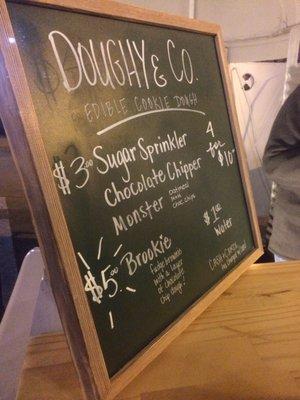 DOUGHY & CO.
EDIBLE COOKIE DOUGH
$3.00 Sugar Sprinkler
Chocolate Chipper
Monster oatmeal with choc chips
4 for $10
$1.00 Water
$5.00 Brookie
fudge brownie
with a layer
of chocolate
chip dough!
CASH & CREDIT